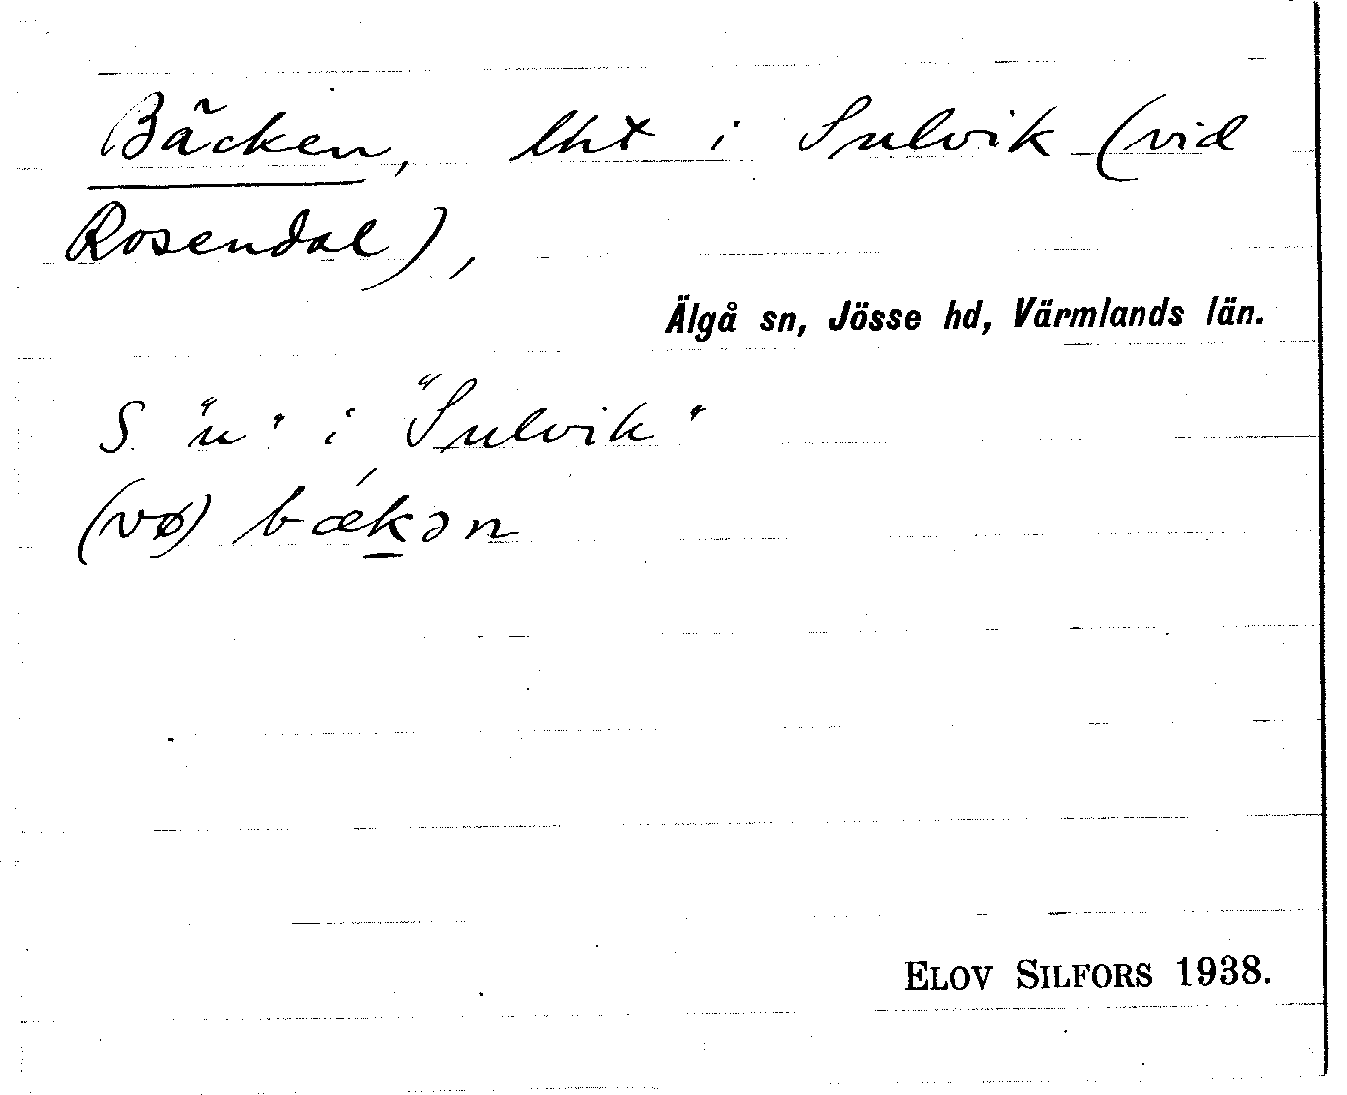 Bäcken, lht i Sulvik (vid
Rosendal),
Älgå sn, Jösse hd, Värmlands län.
S. "u" i "Sulvik"
(vø) bǽk̲ən
ELOV SILFORS 1938.